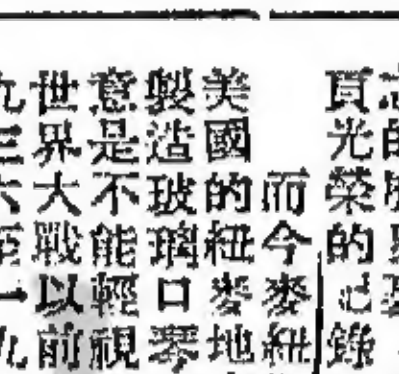 頁光榮的記錄
而今麥紐
美國的紐麥地
製造玻璃口琴
意是不能輕視
世界大戰以前
九三六
一九